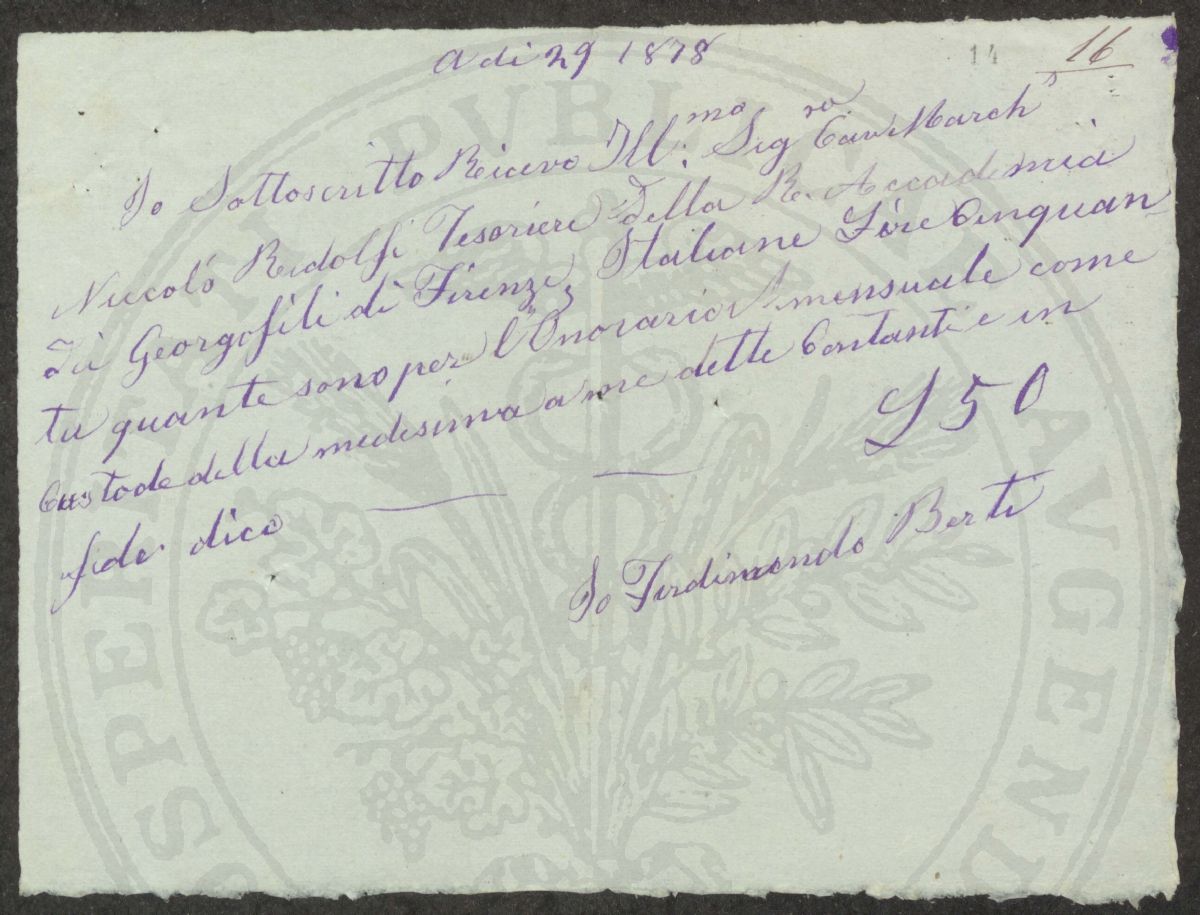 A di 29 1878
14
16
Io Sottoscritto Ricevo Ill:mo Sigro Cav March's
Niccoló Ridolfi Tesoriere Della R. Accademia
Dei Georgofili di Firenze Italiane Lire Cinquan
ta quante sono per l'Onorario mensuale come
Custode della medesima a me dette Contanti e in
fede dico L 50
Io Ferdinando Berti